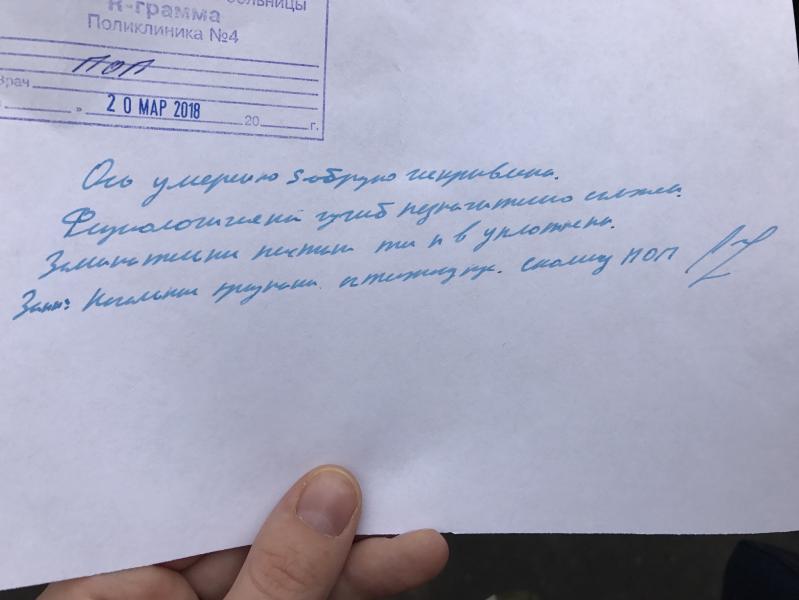 больницы
R-грамма
Поликлиника №4
ПОП
Врач
" 20 МАР 2018 20 г.
Ось умеренно S-образно искривлена.
Физиологический изгиб незначительно сглажен.
Замыкательные пластины тел п в уплотнены.
Закл: Начальные признаки остеохондроза. сколиоз ПОП